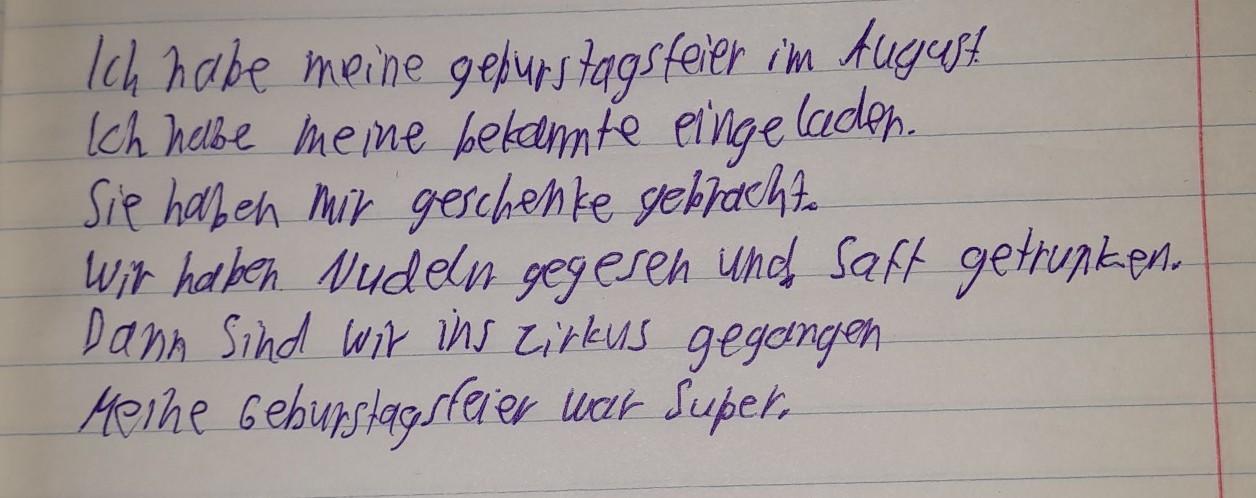 Ich habe meine geburstagsfeier im August.
Ich habe meine bekannte eingeladen.
Sie haben mir geschenke gebracht.
Wir haben Nudeln gegesen und Saft getrunken.
Dann Sind wir ins zirkus gegangen
Meine Geburstagsfeier war Super.